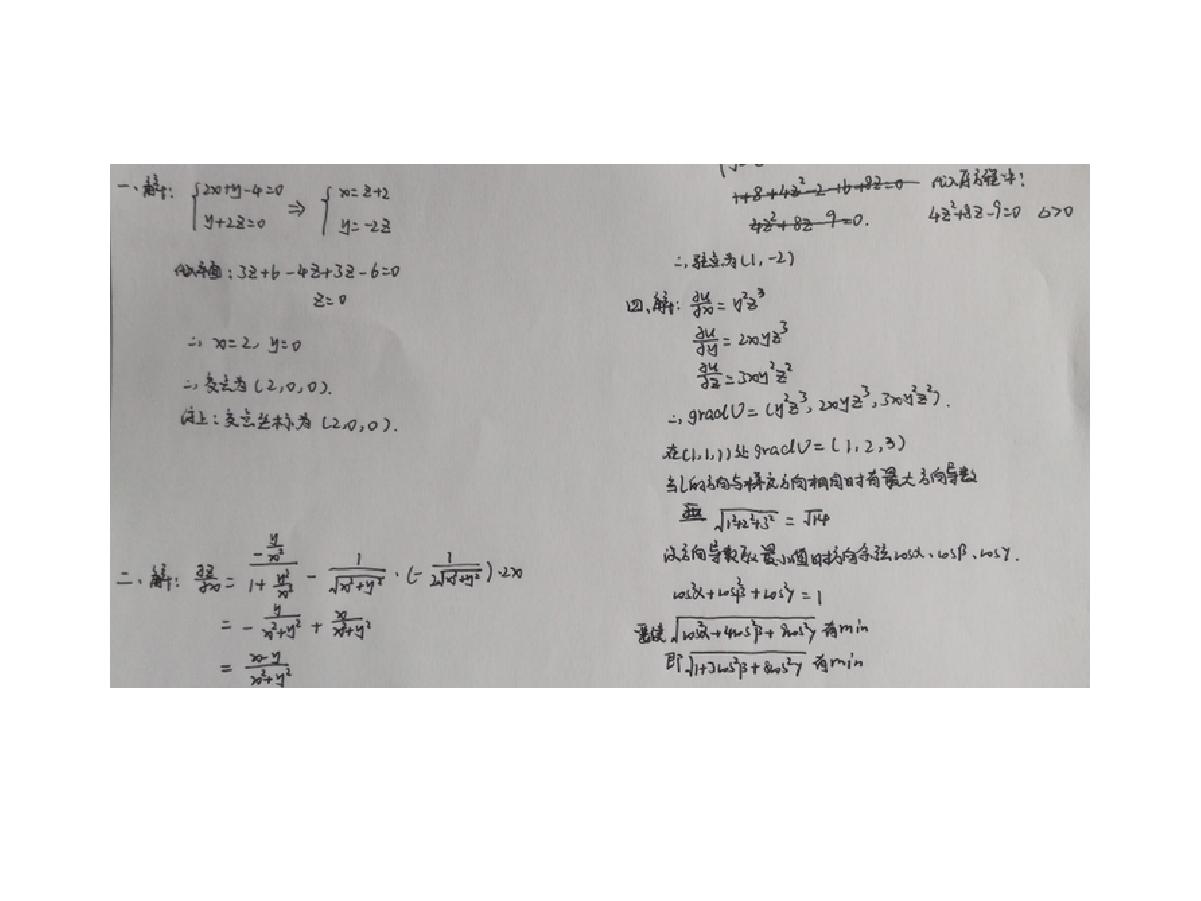 一、解: { 2x+y-4=0 y+2z=0 ⇒ { x=z+2 y=-2z
代入平面: 3z+6-4z+3z-6=0
z=0
∴ x=2, y=0
∴ 交点为 (2,0,0).
综上: 交点坐标为 (2,0,0).
二、解: ∂z/∂x = (-y/x²)/(1+y²/x²) - 1/√(x²+y²) · (- 1/(2√(x²+y²))) · 2x
= - y/(x²+y²) + x/(x²+y²)
= (x-y)/(x²+y²)
1+8+4z²-2-16+8z=0 代入原方程中:
4z²+8z-9=0. 4z²+8z-9=0 Δ>0
∴ 驻点为 (1,-2)
四、解: ∂u/∂x = y²z³
∂u/∂y = 2xyz³
∂u/∂z = 3xy²z²
∴ gradU = (y²z³, 2xyz³, 3xy²z²).
在(1,1,1)处 gradU = (1,2,3)
当l的方向与梯度方向相同时有最大方向导数
√(1²+2²+3²) = √14
设方向导数取最小值时方向余弦 cosα、cosβ、cosγ.
cos²α + cos²β + cos²γ = 1
要使 √(cos²α+4cos²β+9cos²γ) 有min
即 √(1+3cos²β+8cos²γ) 有min